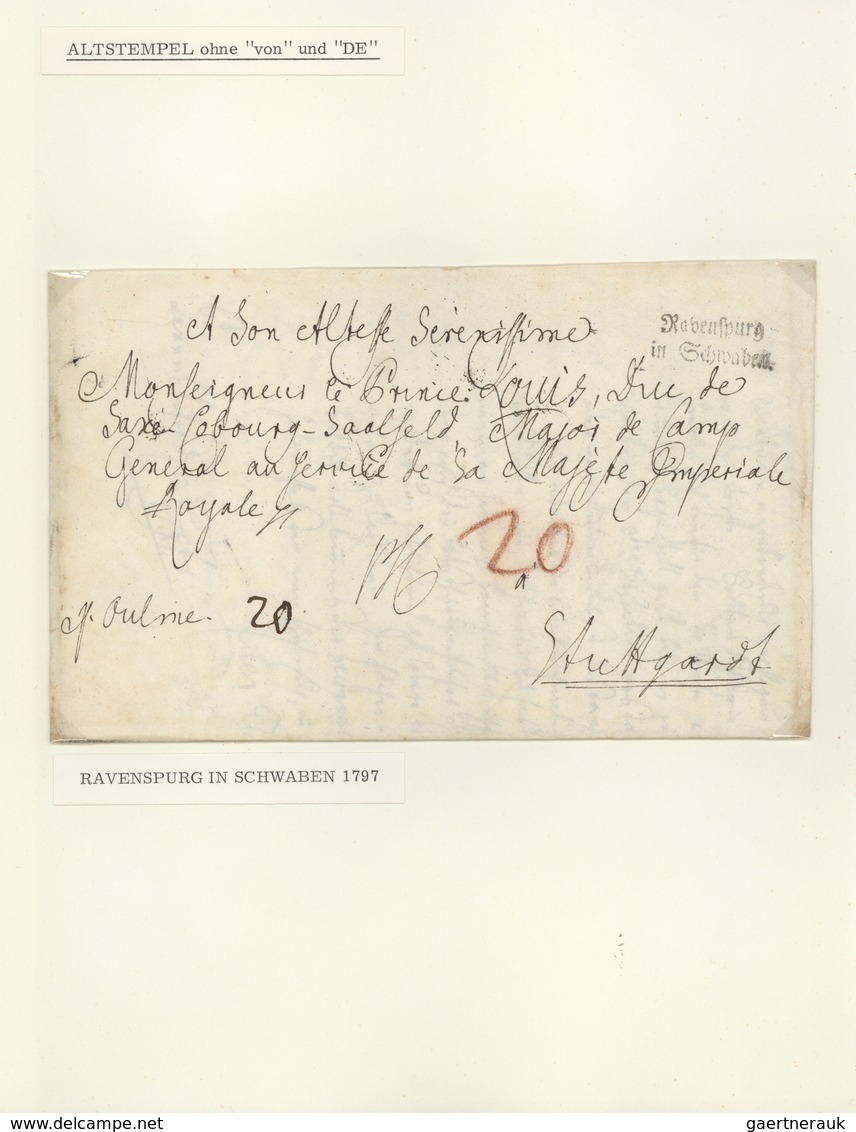 ALTSTEMPEL ohne "von" und "DE"
A Son Altesse Sérénissime
Ravenspurg
in Schwaben.
Monseigneur le Prince Louis, Duc de
Saxe-Cobourg-Saalfeld, Major de Camp
General au Service de Sa Majeste Imperiale
Royale
20
a
p. Oulme. 20
Stuttgardt
RAVENSPURG IN SCHWABEN 1797
gaertnerauk